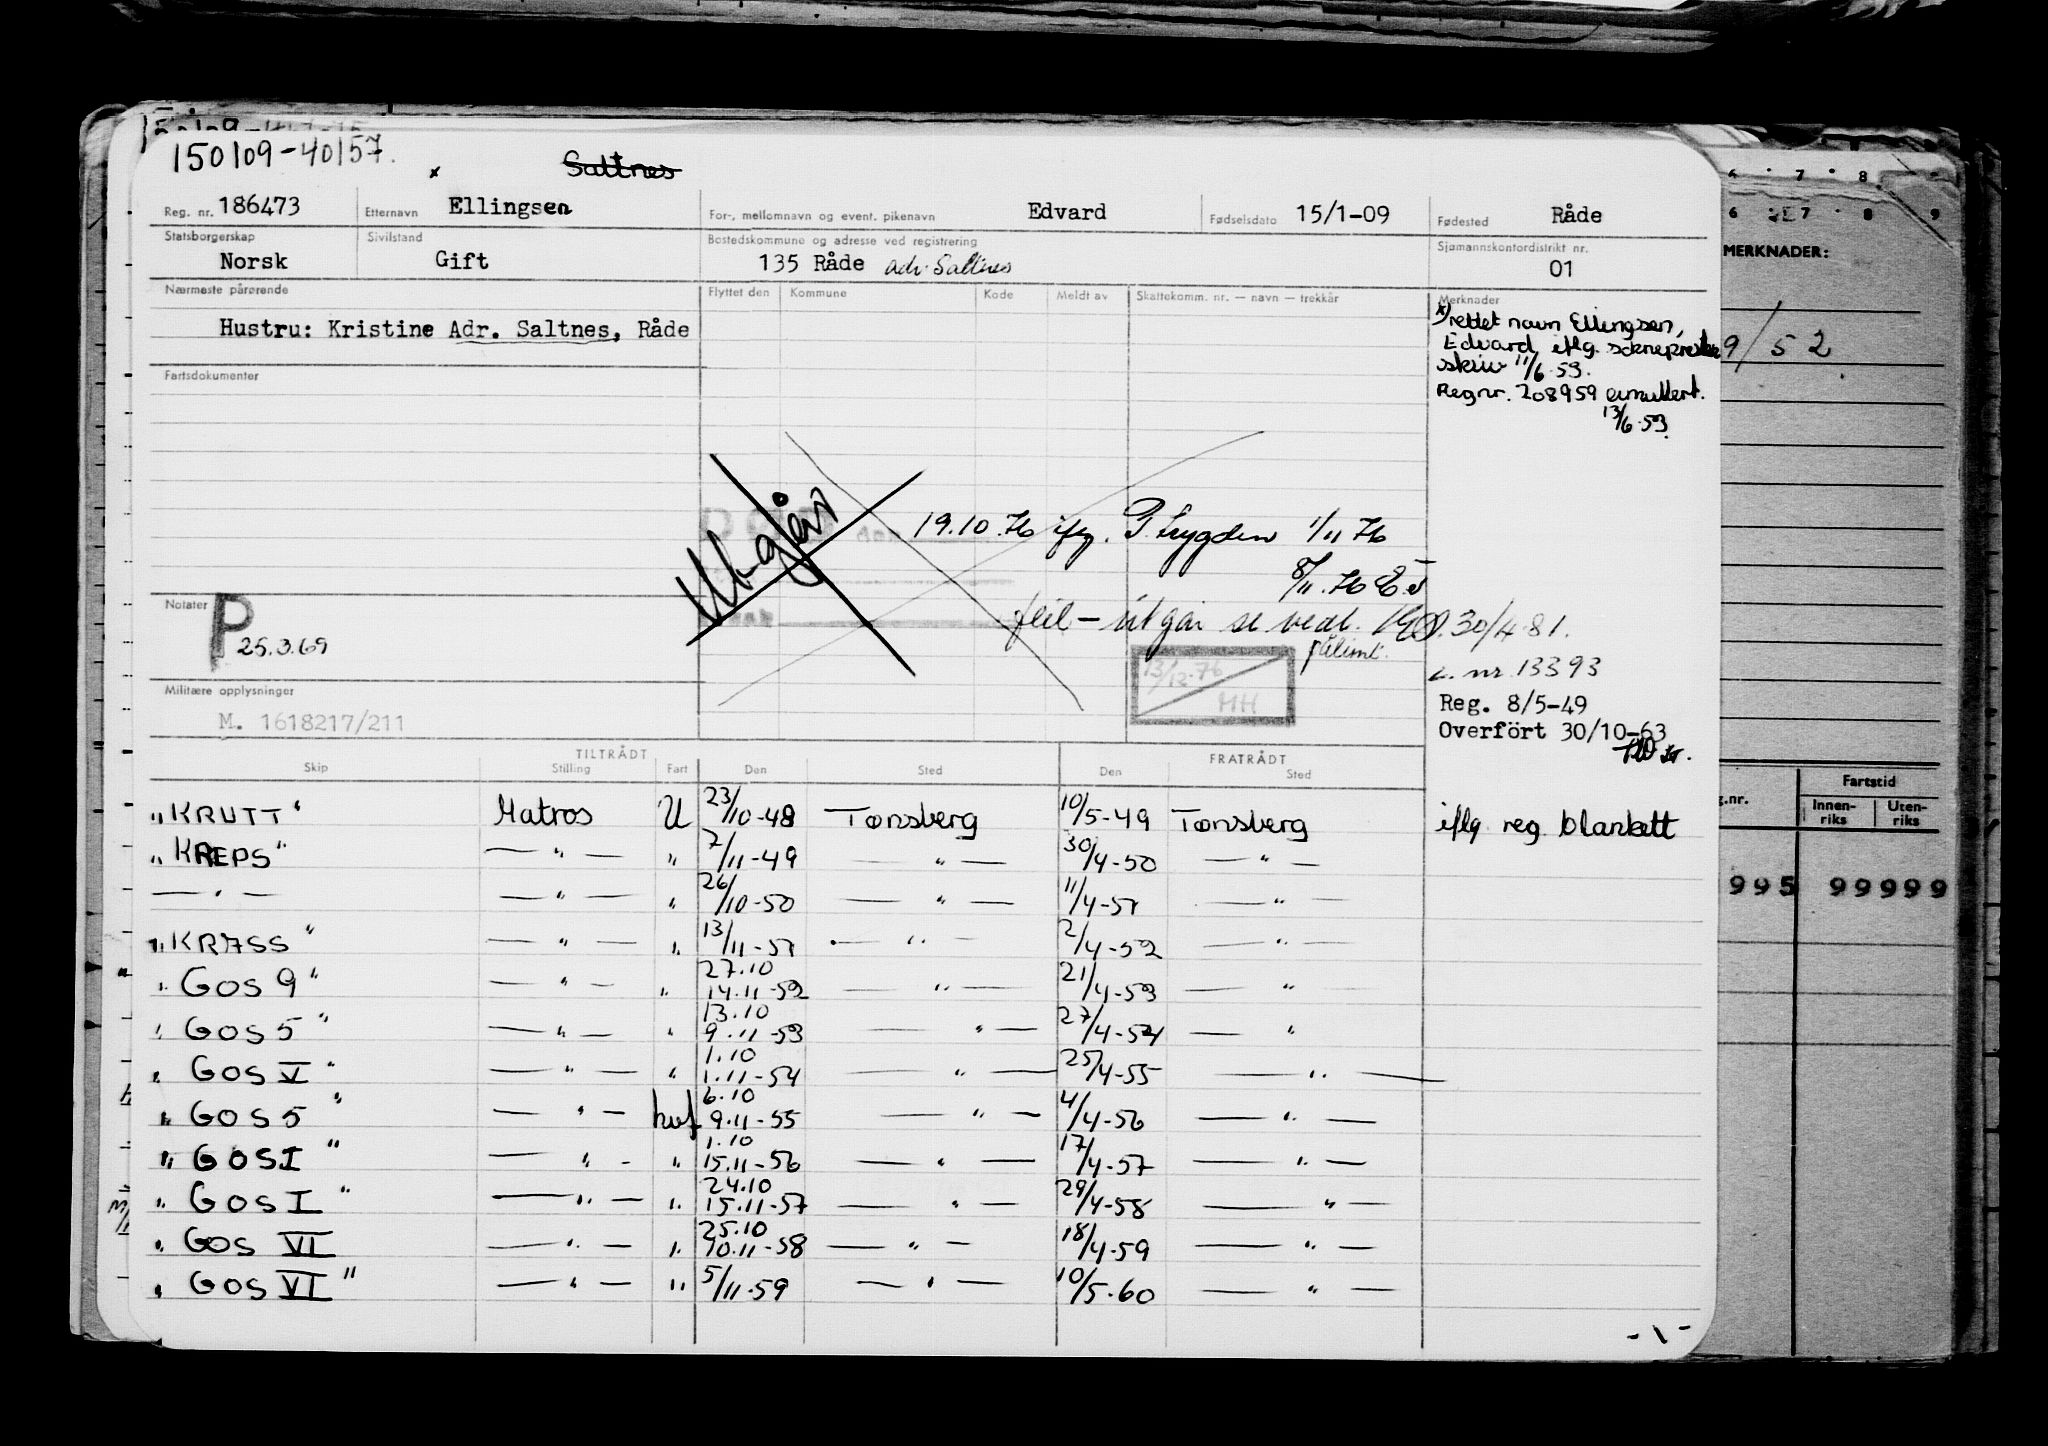 150109-40157.
x Saltnes
Reg. nr. 186473 Etternavn Ellingsen For-, mellomnavn og event. pikenavn Edvard Fødselsdato 15/1-09 Fødested Råde
Statsborgerskap Norsk Sivilstand Gift Bostedskommune og adresse ved registrering 135 Råde adr. Saltnes Sjømannskontordistrikt nr. 01
Nærmeste pårørende Flyttet den Kommune Kode Meldt av Skattekomm. nr. — navn — trekkår Merknader
Hustru: Kristine Adr. Saltnes, Råde
x) rettet navn Ellingsen,
Edvard iflg.
skriv 11/6.53.
Regnr. 208959 annullert.
13/6.53.
Fartsdokumenter
Utgår
19.10.76 iflg. P. trygden 1/11 76
8/11.76
feil — utgår se vedl. 30/4.81.
13/12.76
HH
L. nr 13393
Notater P
25.3.69
Militære opplysninger
M. 1618217/211
Reg. 8/5-49
Overfört 30/10-63
TILTRÅDT FRATRÅDT
Skip Stilling Fart Den Sted Den Sted
"KRUTT" Matros U 23/10-48 Tønsberg 10/5-49 Tønsberg iflg reg. blankett
"KREPS" — " — " 7/11-49 — " — 30/4-50 — " —
— " — — " — " 26/10-50 — " — 11/4-51 — " —
"KRASS" — " — " 13/11-51 — " — 2/4-52 — " —
"GOS 9" — " — " 27.10 14.11-52 — " — 21/4-53 — " —
"GOS 5" — " — " 13.10 9.11-53 — " — 27/4-54 — "
"GOS V" — " — " 1.10 1.11-54 — " — 25/4-55 — " —
"GOS 5" — " — hvf 6.10 9.11-55 — " — 4/4-56 — " —
"GOS I" — " - " 1.10 15.11-56 — " — 17/4-57 — " —
"GOS I" — " — " 24.10 15.11-57 — " — 29/4-58 — " —
"GOS VI" — " — " 25.10 10.11-58 — " — 18/4-59 — " —
"GOS VI" — " — " 5/11.59 — " — 10/5.60 — " —
-1-
6 7 8
6 7 8 9
MERKNADER:
9/52
Fartstid
g.nr. Innen-riks Uten-riks
995 99999